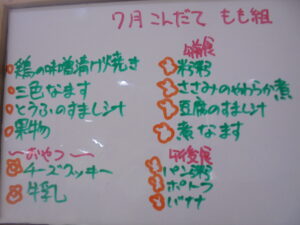 7月 こんだて もも組
鶏の味噌漬け焼き
三色なます
とうふのすまし汁
果物
〜おやつ〜
チーズクッキー
牛乳
離乳食
米粥
ささみのやわらか煮
豆腐のすまし汁
煮なます
パン粥
ポトフ
バナナ